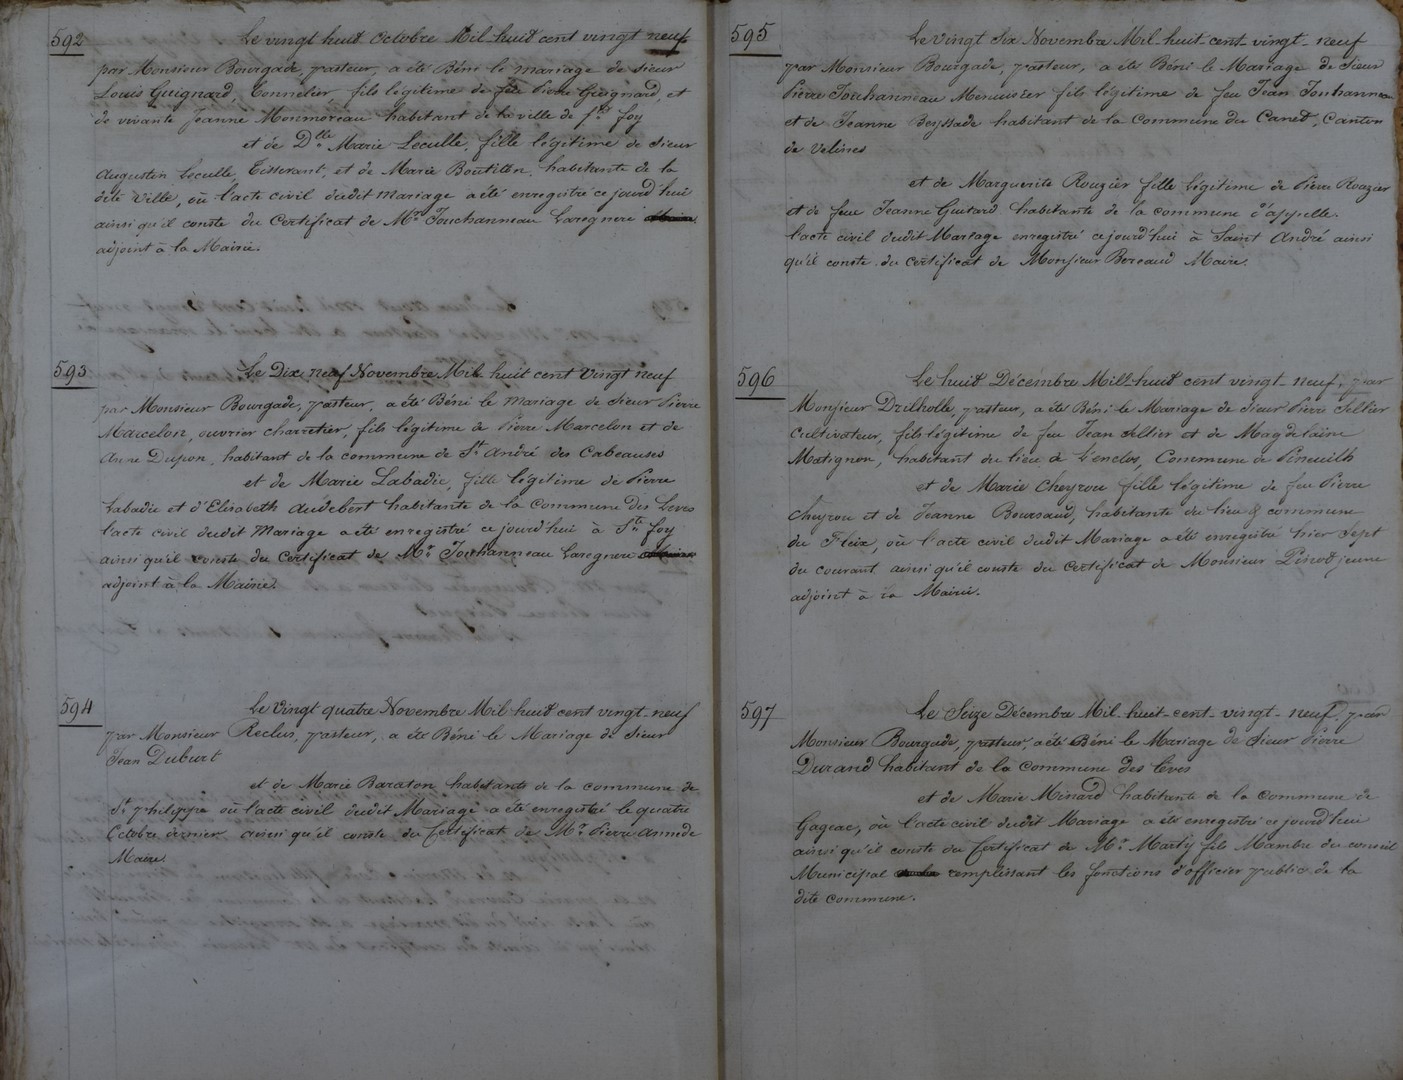 592
Le vingt huit Octobre Mil-huit cent vingt neuf
par Monsieur Bourgade, pasteur, a été Béni le mariage de sieur
Louis Guignard, Tonnelier fils légitime de feu Pierre Guignard, et
de vivante Jeanne Monmoreau habitant de la ville de Ste foy
et de Dlle Marie Leculle, fille légitime de Sieur
Augustin Leculle, Tisserant, et de Marie Boutilen habitante de la
dite Ville, où l'acte civil dudit mariage a été enregistré ce jourd'hui
ainsi qu'il conste du Certificat de Mr. Jouhanneau Laregnere
adjoint à la Mairie.
593
Le Dix neuf Novembre Mil huit cent Vingt neuf
par Monsieur Bourgade, pasteur, a été Béni le mariage de Sieur Pierre
Marcelon, ouvrier charretier, fils légitime de Pierre Marcelon et de
Anne Dupon, habitant de la commune de St. André des Cabeauses
et de Marie Labadie, fille légitime de Pierre
Labadie et d'Elisabeth Audebert habitante de la Commune des Leves
l'acte civil dudit Mariage a été enregistré ce jourd'hui à Ste foy
ainsi qu'il conste du Certificat de Mr. Jouhanneau Laregnere
adjoint à la Mairie.
594
Le Vingt quatre Novembre Mil huit cent vingt-neuf
par Monsieur Reclus, pasteur, a été Béni le Mariage de Sieur
Jean Duburt
et de Marie Baraton habitants de la commune de
St. philippe où l'acte civil dudit Mariage a été enregistré le quatre
Octobre dernier ainsi qu'il conste du Certificat de Mr. Pierre
Maire.
595
Le Vingt Six Novembre Mil-huit-cent-vingt-neuf
par Monsieur Bourgade, pasteur, a été Béni le Mariage de Sieur
Pierre Jouhanneau Menuisier fils légitime de feu Jean Jouhanneau
et de Jeanne Beyssade habitant de la Commune du Canet, Canton
de Velines
et de Marguerite Rouzier fille légitime de Pierre Rouzier
et de feue Jeanne Guitard habitante de la commune d'appelle.
l'acte civil dudit Mariage enregistré ce jourd'hui à Saint André ainsi
qu'il conste du certificat de Monsieur Bereaud Maire.
596
Le huit Décembre Mill-huit cent vingt-neuf, par
Monsieur Drilholle, pasteur, a été Béni le Mariage de Sieur Pierre Sellier
Cultivateur, fils légitime de feu Jean Sellier et de Magdelaine
Matignon, habitant du lieu de l'enclos, Commune de Pineuilh
et de Marie Cheyrou fille légitime de feu Pierre
Cheyrou et de Jeanne Boursaud, habitante du lieu & commune
du Fleix, où l'acte civil dudit Mariage a été enregistré hier Sept
du courant ainsi qu'il conste du certificat de Monsieur Pinot jeune
adjoint à la Mairie.
597
Le Seize Décembre Mil-huit-cent-vingt-neuf, par
Monsieur Bourgade, pasteur, a été Béni le Mariage de Sieur Pierre
Durand habitant de la Commune des Lèves
et de Marie Minard habitante de la Commune de
Gageac, où l'acte civil dudit Mariage a été enregistré ce jourd'hui
ainsi qu'il conste du Certificat de Mr. Marty fils Mambre du conseil
Municipal remplissant les fonctions d'officier public de la
dite commune.